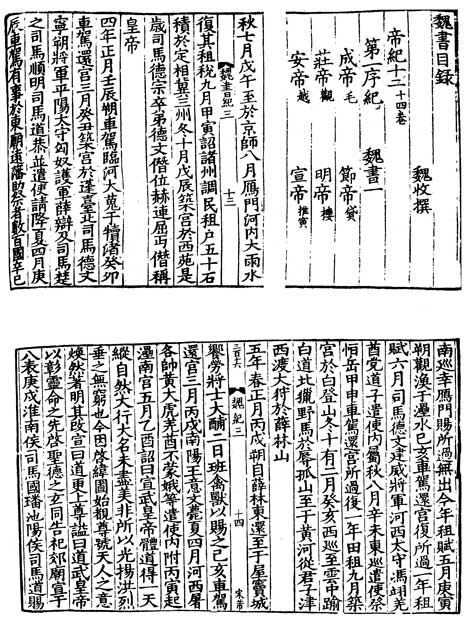 魏書目錄
魏收撰
帝紀十二 十四卷
第一序紀 魏書一
成帝毛 節帝貸
莊帝觀 明帝樓
安帝越 宣帝推寅
秋七月戊午至於京師八月鴈門河内大雨水
魏書紀三 十三
復其租稅九月甲寅詔諸州調民租户五十石
積於定相冀三州冬十月戊辰築宮於西苑是
歲司馬德宗卒弟德文僭位赫連屈丐僭稱
皇帝
四年正月壬辰朔車駕臨河大蒐于犢渚癸卯
車駕還宮三月癸丑築宮於蓬臺北司馬德文
寧朔將軍平陽太守匈奴護軍薛辯及司馬楚
之司馬順明司馬道恭並遣使請降夏四月庚
辰車駕有事於東廟遠藩助祭者數百國辛巳
南巡幸鴈門賜所過無出今年租賦五月庚寅
朔觀漁于灅水己亥車駕還宮復所過一年租
賦六月司馬德文建威將軍河西太守馮翊羌
酋党道子遣使内屬秋八月辛未東巡遣使祭
恒岳甲申車駕還宮所過復一年田租九月築
宮於白登山冬十有二月癸亥西巡至雲中踰
白道北獵野馬於辱孤山至于黄河從君子津
西渡大狩於薛林山
五年春正月丙戌朔自薛林東還至于屋竇城
魏紀三 十四
饗勞將士大酺二日班禽獸以賜之己亥車駕
還宮三月丙戌南陽王意文薨夏四月河西屠
各帥黄大虎羌酋不蒙娥等遣使内附丙寅起
灅南宮五月乙酉詔曰宣武皇帝體道得一天
縱自然大行大名未盡美非所以光揚洪烈
垂之無窮也今因啓緯圖始覩尊號天人之意
煥然著明其改宣曰道更上尊謚曰道武皇帝
以彰靈命之先啓聖德之玄同告祀郊廟宣于
八表庚戌淮南侯司馬國璠池陽侯司馬道賜